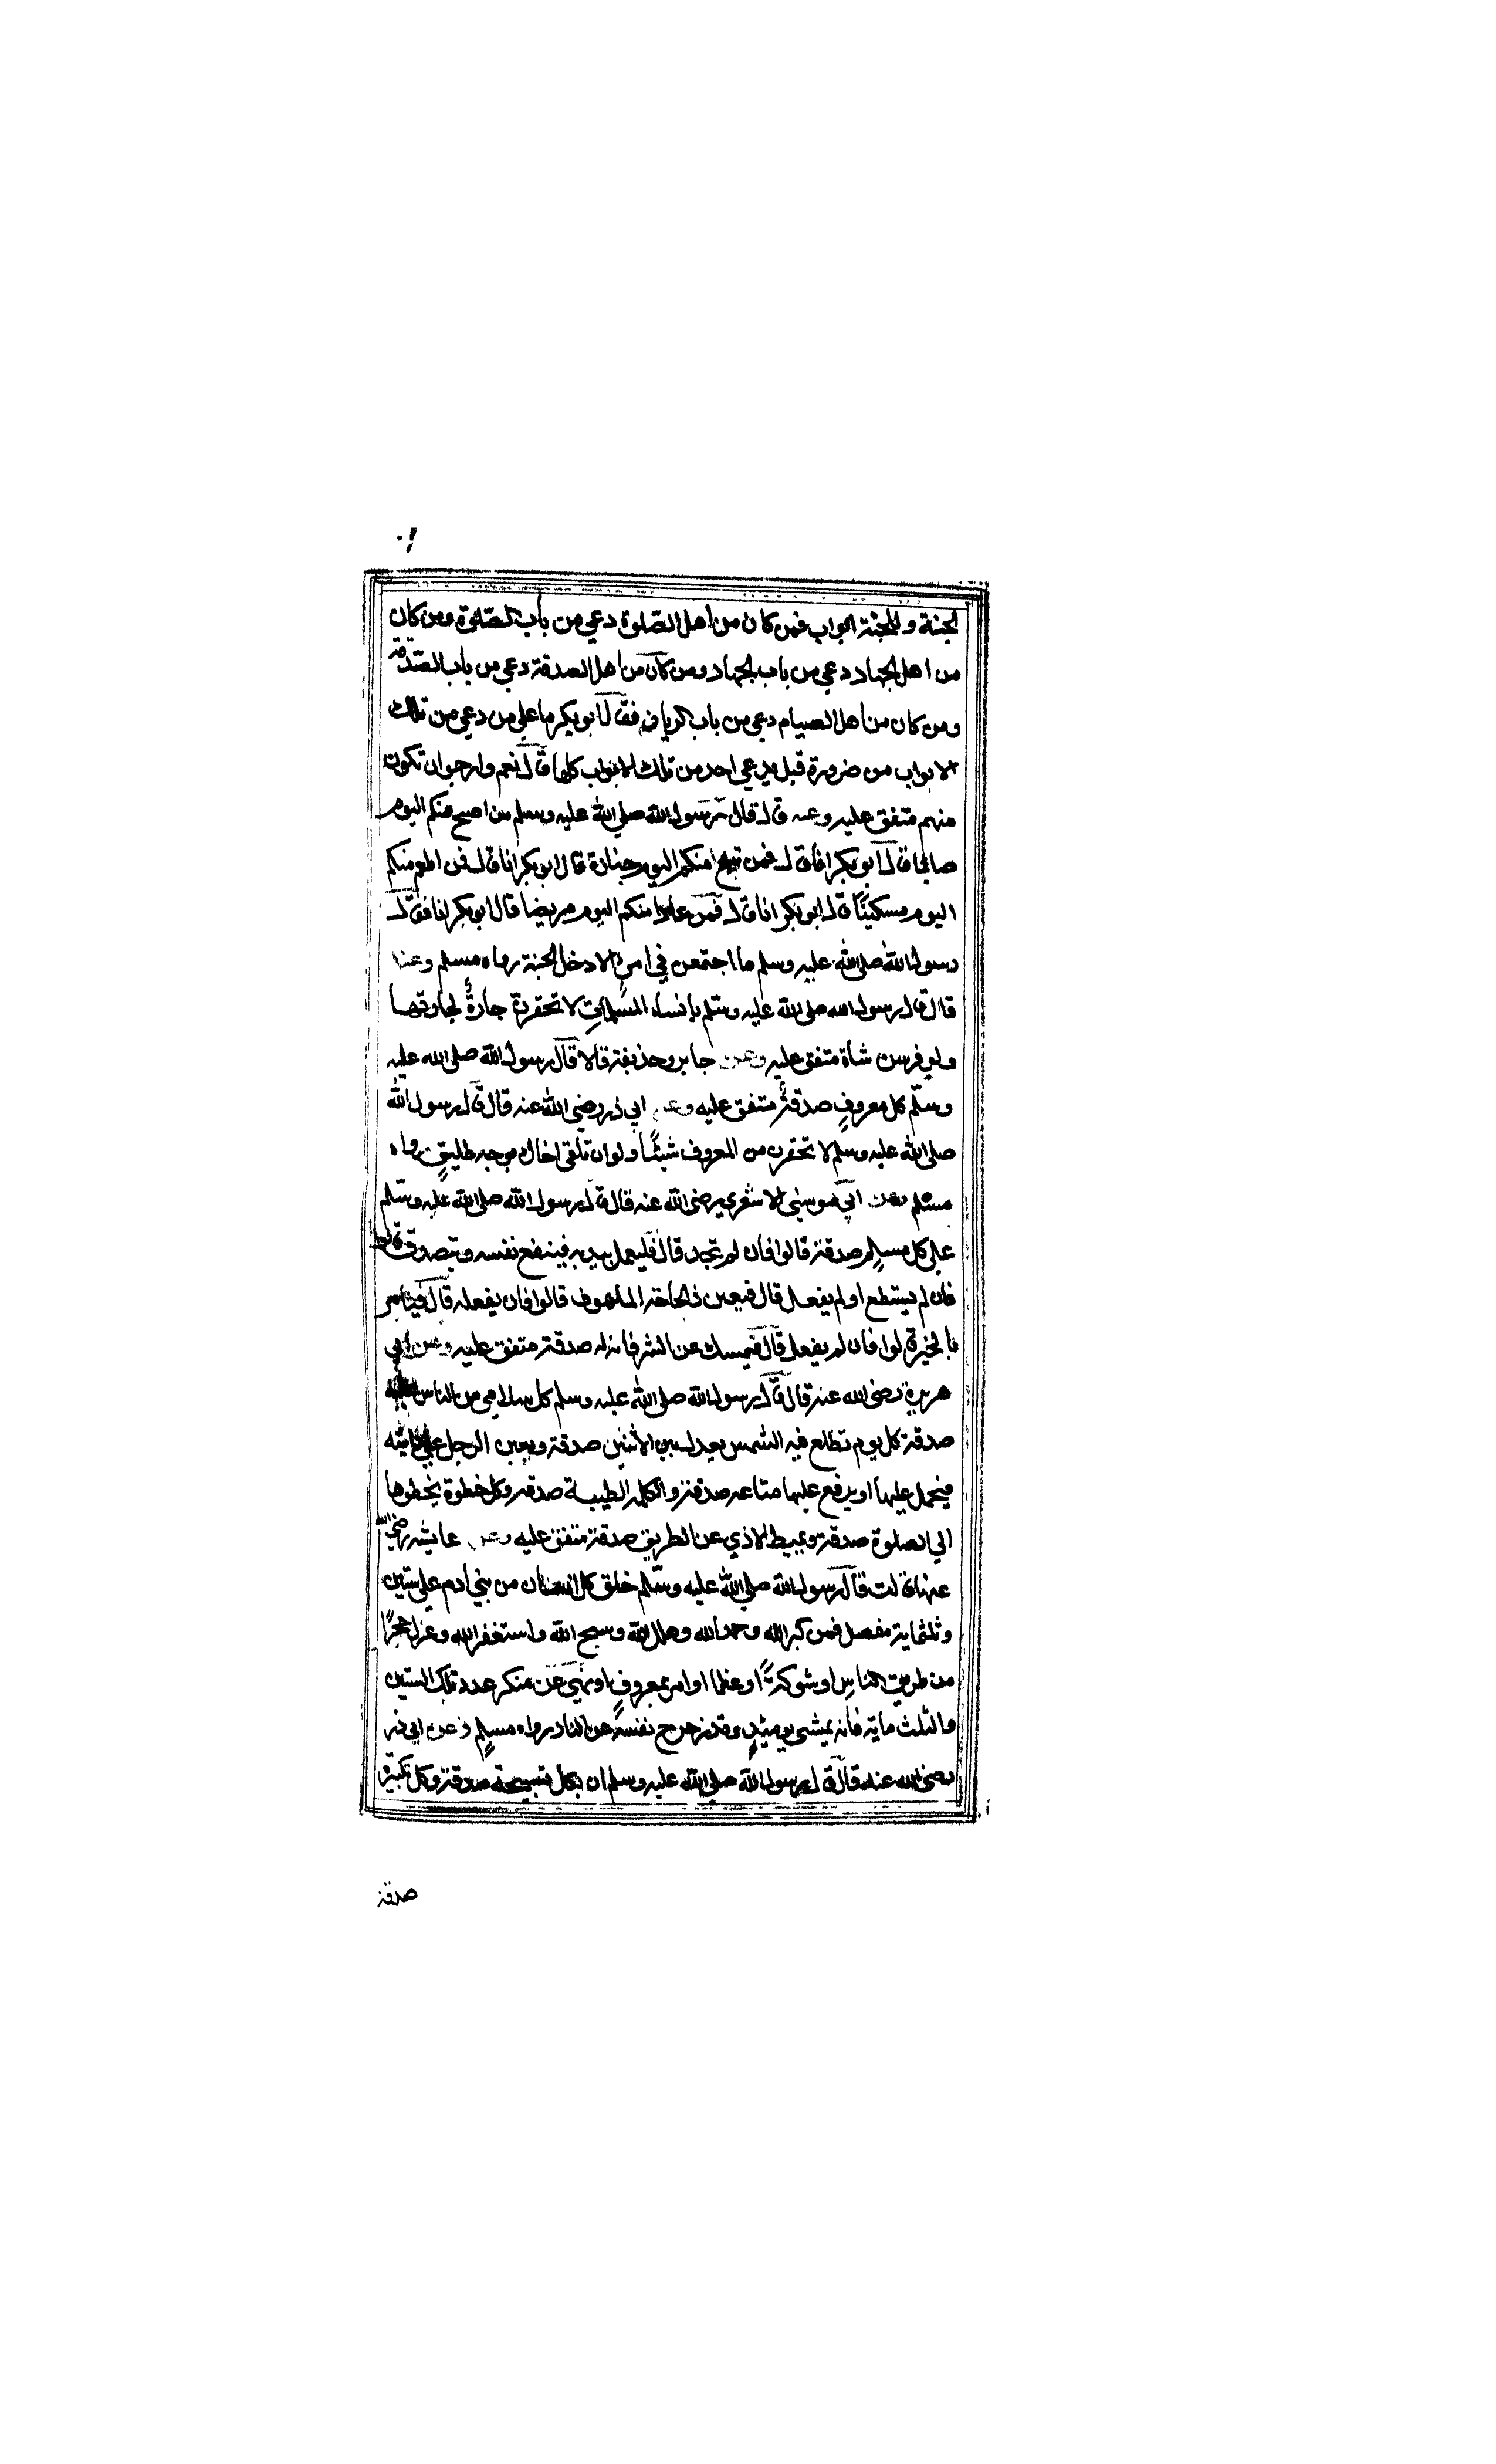 الجنة وللجنة ابواب فمن كان من اهل الصّلوة دعي من باب الصّلوة ومن كان
من اهل الجهاد دعي من باب الجهاد ومن كان من اهل الصدقة دعي من باب الصّدقة
ومن كان من اهل الصيام دعي من باب الريان فقال ابو بكر ما علي من دعي من تلك
الابواب من ضرورة فهل يدعي احد من تلك الابواب كلها قال نعم وارجوان تكون
منهم متفق عليه وعنه قال قال رسول الله صلي الله عليه وسلم من اصبح منكم اليوم
صائما قال ابو بكر انا قال فمن تبع منكم اليوم جنازة قال ابو بكر انا قال فمن اطعم منكم
اليوم مسكينًا قال ابو بكر انا قال فمن عاد منكم اليوم مريضا قال ابو بكر انا فقال
رسول الله صلي الله عليه وسلم ما اجتمعن في امرئ الا دخل الجنة رواه مسلم وعنه
قال قال رسول الله صلي الله عليه وسلم يا نساء المسلمات لا تحقرن جارةٌ لجارتها
ولو فرسن شاة متفق عليه وعن جابر وحذيفة قالا قال رسول الله صلي الله عليه
وسلّم كل معروفٍ صدقةٌ متفق عليه وعن ابي ذر رضي الله عنه قال قال رسول الله
صلي الله عليه وسلم لا تحقرن من المعروف شيئًا ولو ان تلقي اخاك بوجه طليقٍ رواه
مسلم وعن ابي موسي الاشعري رضي الله عنه قال قال رسول الله صلي الله عليه وسلّم
علي كل مسلمٍ صدقة قالوا فان لم تجد قال فليعمل بيديه فينفع نفسه ويتصدق قالوا
فان لم يستطع او لم يفعل قال فيعين ذا الحاجة الملهوف قالوا فان يفعله قال فيأمر
بالخير قالوا فان لم يفعل قال فيمسك عن الشر فانه له صدقة متفق عليه وعن ابي
هريرة رضي الله عنه قال قال رسول الله صلي الله عليه وسلم كل سلامي من الناس عليه
صدقة كل يوم تطلع فيه الشمس يعدل بين الاثنين صدقة ويعين الرجل علي دابته
فيحمل عليها او يرفع عليها متاعه صدقة والكلمة الطيبة صدقة وكل خطوة يخطوها
الي الصلوة صدقة ويميط الاذي عن الطريق صدقة متفق عليه وعن عايشه رضي الله
عنها قالت قال رسول الله صلي الله عليه وسلّم خلق كل انسان من بني ادم علي ستين
وثلثماية مفصل فمن كبر الله وحمد الله وهلل الله وسبح الله واستغفر الله وعزل حجرًا
من طريق الناس او شوكةً او عظما او امر بمعروفٍ او نهي عن منكر عدد تلك الستين
والثلث ماية فانه يمشي يومئذٍ وقد زحزح نفسه عن النار رواه مسلمٍ وعن ابي ذر
رضي الله عنه قال قال رسول الله صلي الله عليه وسلم ان بكل تسبيحة صدقة وكل تكبيرة
صدقة